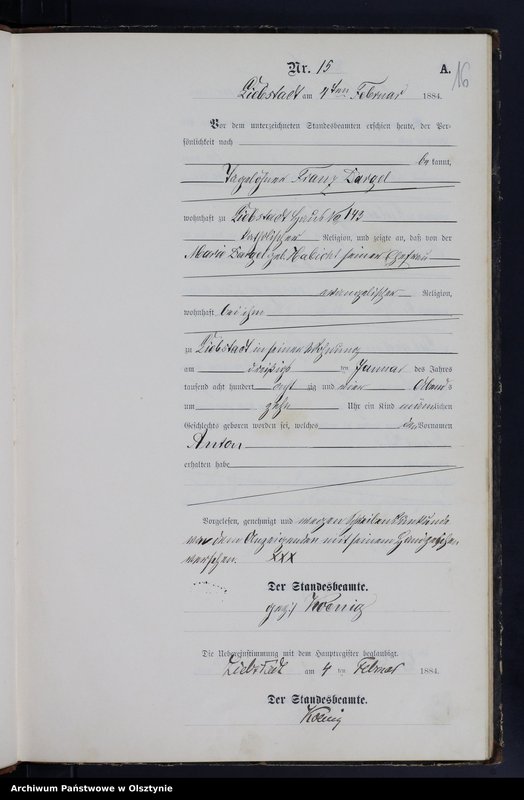 Nr. 15
A.
16
Liebstadt am 4ten Februar 1884.
Vor dem unterzeichneten Standesbeamten erschien heute, der Per-
sönlichkeit nach
be kannt,
Tagelöhner Franz Dargel
wohnhaft zu Liebstadt Haus No 143
katholischer Religion, und zeigte an, daß von der
Marie Dargel geb. Habicht seiner Ehefrau
evangelischer Religion,
wohnhaft bei ihm
zu Liebstadt in seiner Wohnung
am dreißigsten Januar des Jahres
tausend acht hundert acht zig und vier Abends
um zehn Uhr ein Kind männlichen
Geschlechts geboren worden sei, welches den Vornamen
Anton
erhalten habe
Vorgelesen, genehmigt und wegen Schreibensunkunde
von dem Anzeigenden mit seinem Handzeichen
versehen. XXX
Der Standesbeamte.
gez. Koenig
Die Uebereinstimmung mit dem Hauptregister beglaubigt.
Liebstadt am 4 ten Februar 1884.
Der Standesbeamte.
Koenig
Archiwum Państwowe w Olsztynie